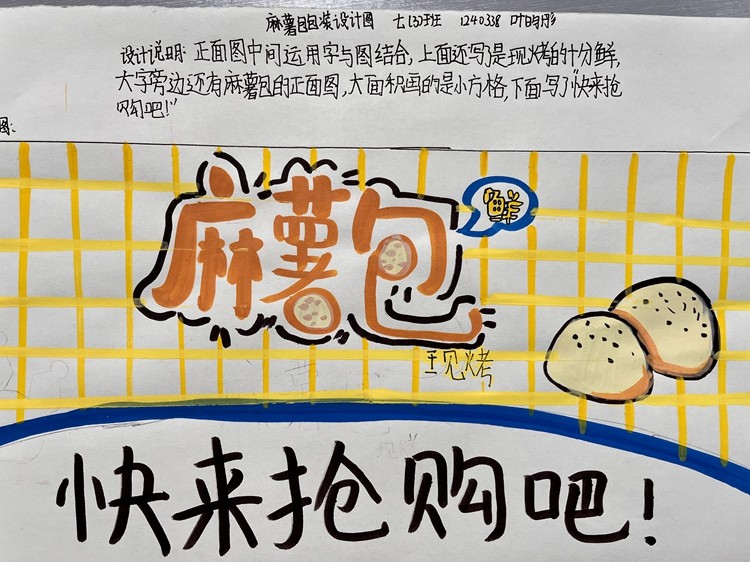 麻薯包包装设计图 七(3)班 1240338 叶昀彤
设计说明:正面图中间运用字与图结合,上面还写了是现烤的十分鲜,
大字旁边还有麻薯包的正面图,大面积画的是小方格,下面写了“快来抢
购吧!”
图:
麻薯包
鲜
现烤
快来抢购吧!